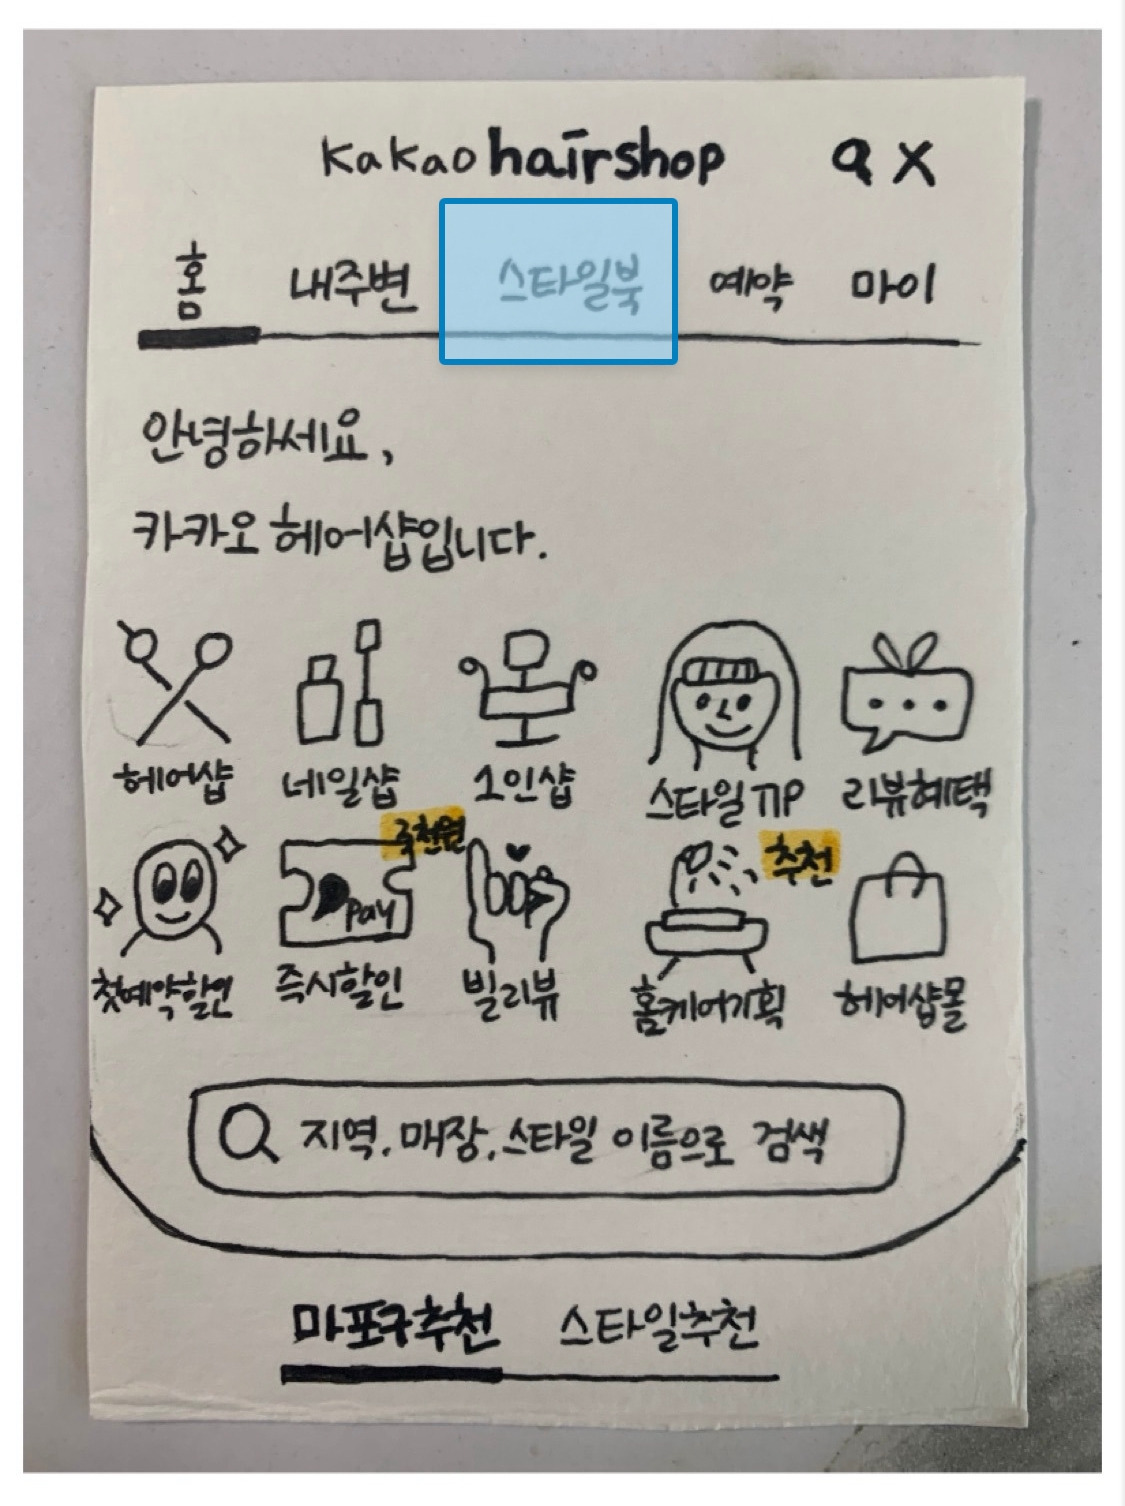 kakao hairshop
홈 내주변 스타일북 예약 마이
안녕하세요,
카카오 헤어샵입니다.
헤어샵 네일샵 1인샵 스타일TIP 리뷰혜택
추천
pay
첫예약할인 즉시할인 빌리뷰 홈케어기획 헤어샵몰
지역, 매장, 스타일 이름으로 검색
마포구추천 스타일추천